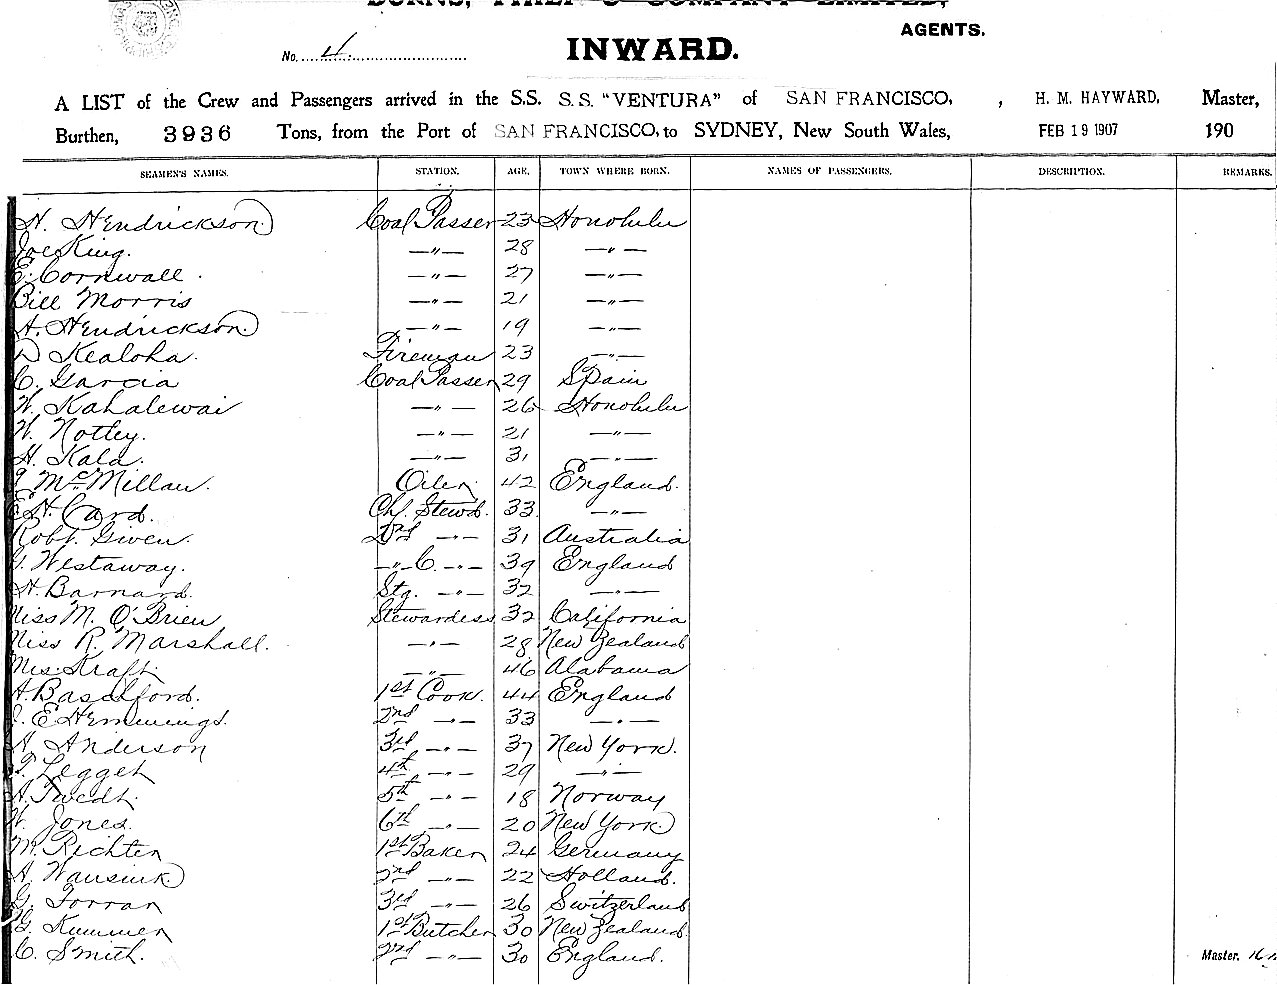 BURNS, PHILP & COMPANY LIMITED,
AGENTS.
No. 4.
INWARD.
A LIST of the Crew and Passengers arrived in the S.S. S.S. "VENTURA" of SAN FRANCISCO, , H. M. HAYWARD, Master,
Burthen, 3936 Tons, from the Port of SAN FRANCISCO, to SYDNEY, New South Wales, FEB 19 1907 190
SEAMEN'S NAMES. STATION. AGE. TOWN WHERE BORN. NAMES OF PASSENGERS. DESCRIPTION. REMARKS.
H. Hendrickson Coal Passer 23 Honolulu
Joe King. —"— 28 —"—
E. Cornwall. —"— 27 —"—
Bill Morris —"— 21 —"—
A. Hendrickson —"— 19 —"—
D Kealoha. Fireman 23 —"—
C. Garcia Coal Passer 29 Spain
W. Kahalewai —"— 26 Honolulu
W. Notley. —"— 21 —"—
H. Kala. —"— 31 —"—
McMillan. Oiler 42 England.
E.H. Card. Ch. Stewd. 33 —"—
Robt. Given. 2nd —"— 31 Australia
Westaway. —"— C. —"— 39 England
H. Barnard. Stg. —"— 32 —"—
Miss M. O'Brien Stewardess 32 California
Miss R. Marshall. —"— 28 New Zealand
Mrs. Kraft —"— 46 Alabama
A. Baselford. 1st Cook. 44 England
J. E Hemmings. 2nd —"— 33 —"—
A. Anderson 3rd —"— 37 New York.
Legget 4th —"— 29 —"—
A. Twedt. 5th —"— 18 Norway
W. Jones. 6th —"— 20 New York
M. Richter 1st Baker 24 Germany
A. Wansink 2nd —"— 22 Holland.
G. Torran 3rd —"— 26 Switzerland
G. Kummer 1st Butcher 30 New Zealand
C. Smith. 2nd —"— 30 England.
Master.